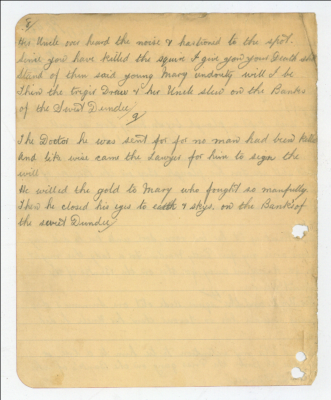 8
Her Uncle over heard the noise & hastened to the spot.
Since you have killed the squire I give you your Death shot
Stand of then said young Mary undaunty will I be
Then the trigir Drawe & her Uncle slew on the Banks
of the Sweet Dundee
9
The Doctor he was sent for for no man had been killed
And like wise came the Lawyer for him to sign the
will
He willed the gold to Mary who fought so manfully
Then he closed his eyes to earth & skys. on the Banks of
the sweet Dundee